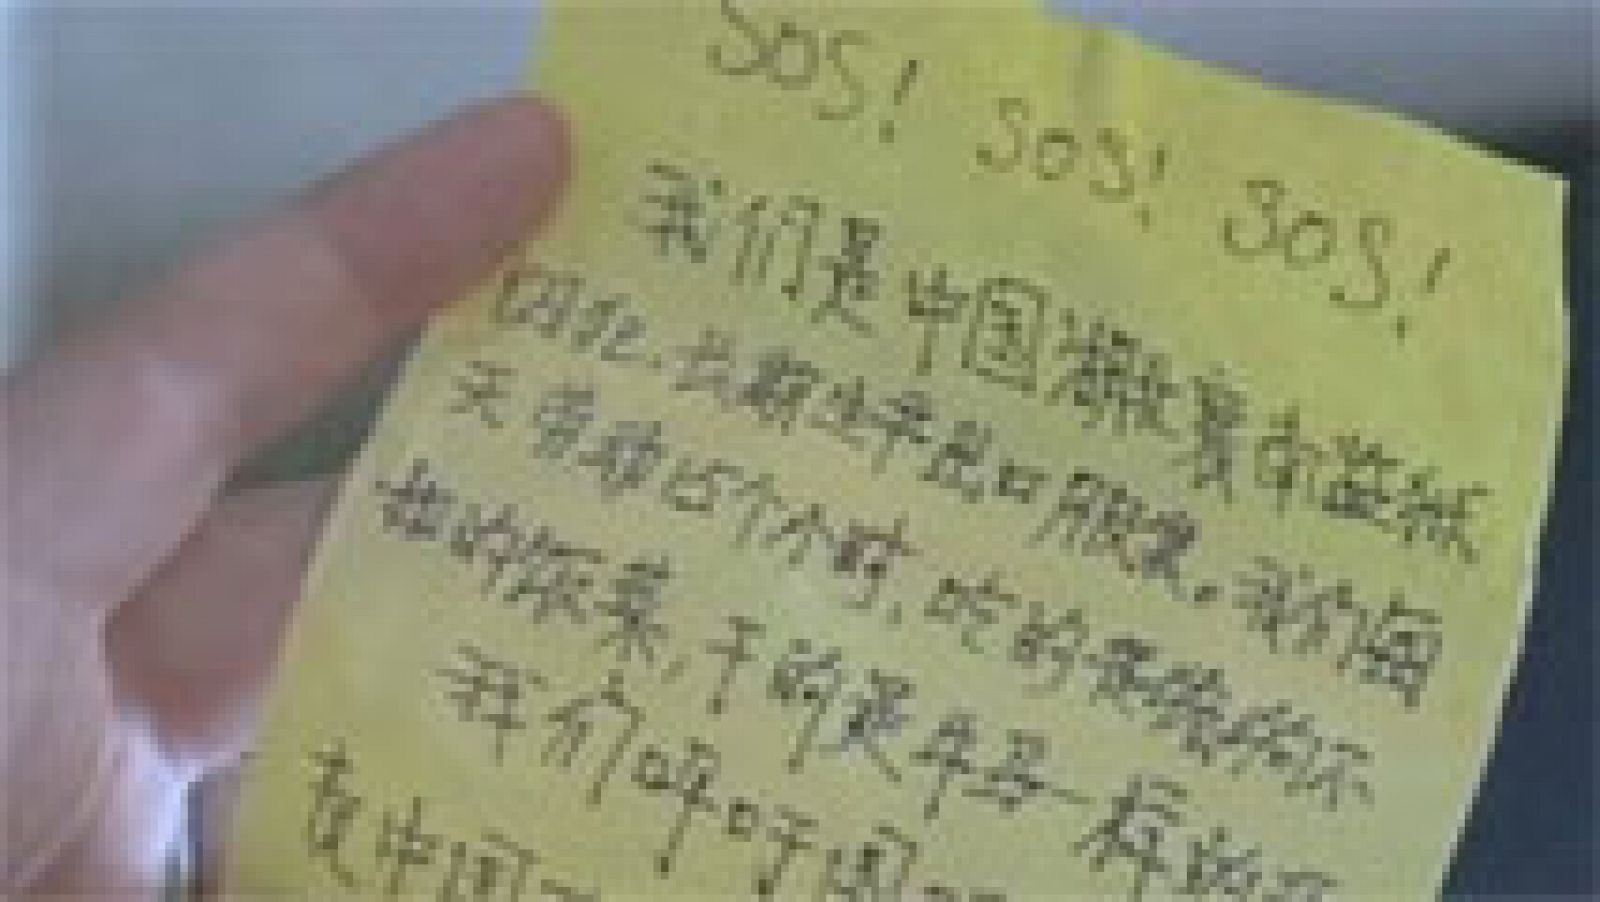 SOS! SOS! SOS!
我们是中国湖北襄南监狱
囚犯、长期生产出口服装。我们每
天劳动15个小时,吃的是猪狗不
如的饭菜,干的是牛马一样的
我们呼吁国
中国